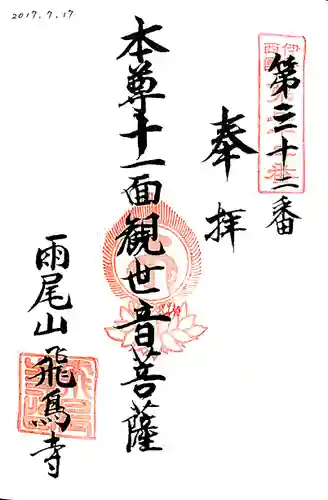 2017.7.17
第三十二番
奉拝
本尊十一面観世音菩薩
雨尾山飛鳥寺